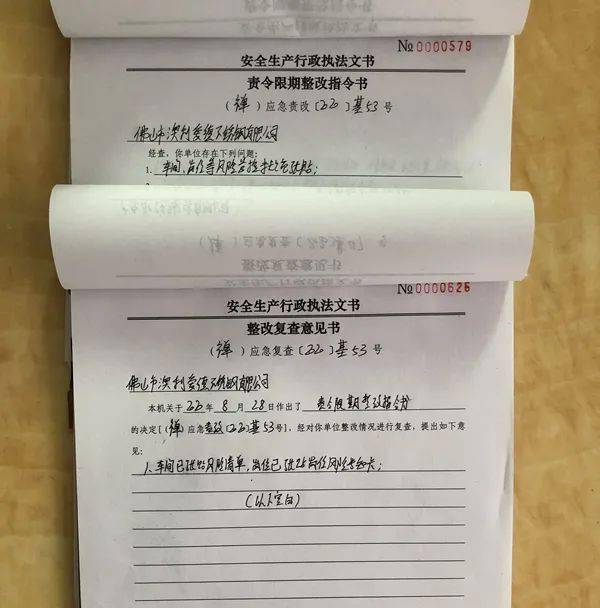 №0000579
安全生产行政执法文书
责令限期整改指令书
（禅）应急责改〔22〕基53号
佛山市澳利爱德不锈钢有限公司
经查，你单位存在下列问题：
1. 车间、岗位等风险告
№0000626
安全生产行政执法文书
整改复查意见书
（禅）应急复查〔22〕基53号
佛山市澳利爱德不锈钢有限公司
本机关于22年8月28日作出了责令限期整改指令书
的决定[（禅）应急责改〔22〕基53号]，经对你单位整改情况进行复查，提出如下意
见：
1. 车间已张贴风险清单，岗位已张贴岗位风险告知卡；
（以下空白）